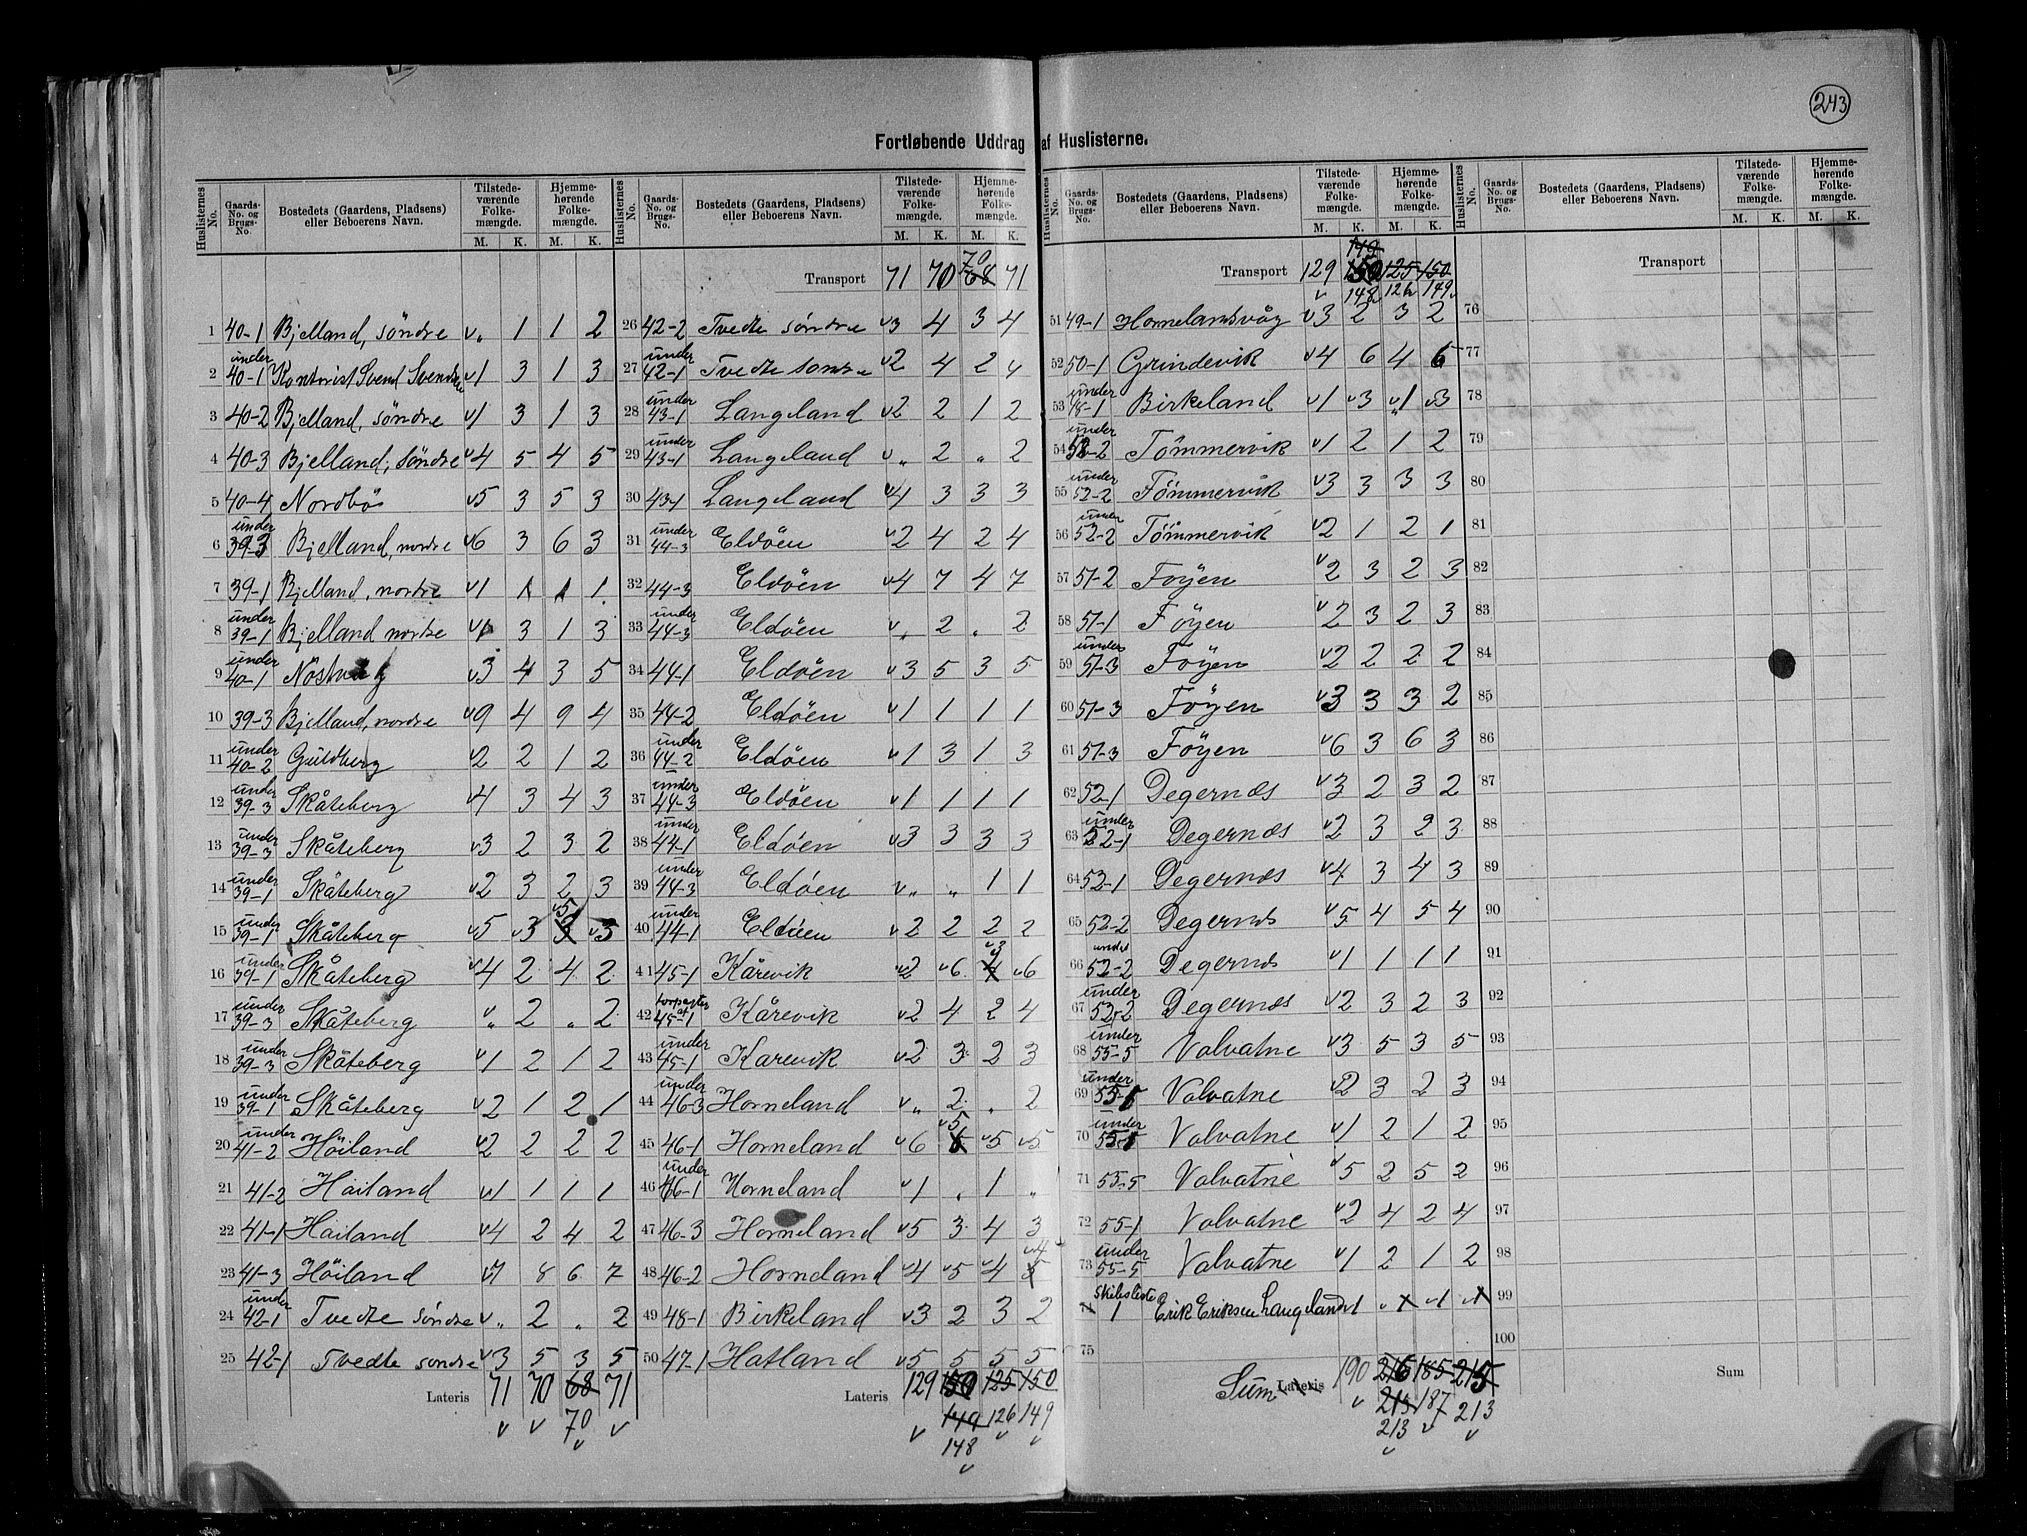 243
Fortløbende Uddrag af Huslisterne.
Huslisternes No. Gaards-No. og Brugs-No. Bostedets (Gaardens, Pladsens) eller Beboerens Navn. Tilstedeværende Folkemængde. M. K. Hjemmehørende Folkemængde. M. K.
1 40-1 Bjelland, søndre v „ 1 1 2
2 under 40-1 Svend v1 3 1 3
3 40-2 Bjelland, søndre v1 3 1 3
4 40-3 Bjelland, søndre v4 5 4 5
5 40-4 Nordbö v5 3 5 3
6 under 39-3 Bjelland, nordre v6 3 6 3
7 39-1 Bjelland, nordre v1 1 1 1
8 under 39-1 Bjelland nordre v1 3 1 3
9 under 40-1 v3 4 3 5
10 39-3 Bjelland, nordre v9 4 9 4
11 under 40-2 Guldberg v2 2 1 2
12 under 39-3 Skåteberg v4 3 4 3
13 under 39-3 Skåteberg v3 2 3 2
14 under 39-1 Skåteberg v2 3 2 3
15 under 39-1 Skåteberg v5 v3 v5 v3
16 under 39-1 Skåteberg v4 2 4 2
17 under 39-3 Skåteberg v „ 2 „ 2
18 under 39-3 Skåteberg v1 2 1 2
19 under 39-1 Skåteberg v2 1 2 1
20 under 41-2 Höiland v2 2 2 2
21 41-2 Höiland v1 1 1 1
22 41-1 Höiland v4 2 4 2
23 41-3 Höiland v7 8 6 7
24 under 42-1 Tvedte søndre v „ 2 „ 2
25 42-1 Tvedte søndre v3 5 3 5
Lateris 71 70 68 71
v v 70 v v
Huslisternes No. Gaards-No. og Brugs-No. Bostedets (Gaardens, Pladsens) eller Beboerens Navn. Tilstedeværende Folkemængde. M. K. Hjemmehørende Folkemængde. M. K.
Transport 71 70 70 68 71
26 42-2 Tvedte søndre v3 4 3 4
27 under 42-1 Tvedte søndre v2 4 2 4
28 under 43-1 Langeland v2 2 1 2
29 under 43-1 Langeland v „ 2 „ 2
30 43-1 Langeland v4 3 3 3
31 under 44-3 Eldöen v2 4 2 4
32 44-3 Eldöen v4 7 4 7
33 under 44-3 Eldöen v „ 2 „ 2
34 44-1 Eldöen v3 5 3 5
35 44-2 Eldöen v1 1 1 1
36 under 44-2 Eldöen v1 3 1 3
37 under 44-3 Eldöen v1 1 1 1
38 under 44-1 Eldöen v3 3 3 3
39 under 44-3 Eldöen v „ „ 1 1
40 under 44-1 Eldöen v2 2 2 2
41 45-1 Kårevik v2 v6 v3 4 v6
42 af 45-1 Kårevik v2 4 2 4
43 under 45-1 Kårevik v2 3 2 3
44 under 46-3 Horneland v „ 2 „ 2
45 46-1 Horneland v6 v5 6 v5 v5
46 under 46-1 Horneland v1 „ 1 „
47 46-3 Horneland v5 3 4 3
48 46-2 Horneland v4 v5 v4 v4 5
49 48-1 Birkeland v3 2 3 2
50 47-1 Hatland v5 5 5 5
Lateris 129 150 125 150
v 149 126 149
148 v v
v
Huslisternes No. Gaards-No. og Brugs-No. Bostedets (Gaardens, Pladsens) eller Beboerens Navn. Tilstedeværende Folkemængde. M. K. Hjemmehørende Folkemængde. M. K.
149
Transport 129 150 125 150
v 148 126 149
51 49-1 Hornelandsvåg v3 2 3 2
52 50-1 Grindevik v4 6 4 6
53 under 48-1 Birkeland v1 v3 v1 v3
54 under 52-2 Tömmervik v1 2 1 2
55 under 52-2 Tömmervik v3 3 3 3
56 under 52-2 Tömmervik v2 1 2 1
57 51-2 Föyen v2 3 2 3
58 51-1 Föyen v2 3 2 3
59 under 51-3 Föyen v2 2 2 2
60 51-3 Föyen v3 3 3 2
61 51-3 Föyen v6 3 6 3
62 52-1 Degernæs v3 2 3 2
63 under 52-1 Degernæs v2 3 2 3
64 52-1 Degernæs v4 3 4 3
65 52-2 Degernæs v5 4 5 4
66 under 52-2 Degernæs v1 1 1 1
67 under 52-2 Degernæs v2 3 2 3
68 under 55-5 Valvatne v3 5 3 5
69 under 55-5 Valvatne v2 3 2 3
70 under 55-5 Valvatne v1 2 1 2
71 55-5 Valvatne v5 2 5 2
72 55-1 Valvatne v2 4 2 4
73 under 55-5 Valvatne v1 2 1 2
74 Skibsliste 1 Erik Eriksen Langeland v1 v1 v1 v1
75
Sum Lateris 190 216 185 215
v 215 187 213
213 v v
v
Huslisternes No. Gaards-No. og Brugs-No. Bostedets (Gaardens, Pladsens) eller Beboerens Navn. Tilstedeværende Folkemængde. M. K. Hjemmehørende Folkemængde. M. K.
Transport
76
77
78
79
80
81
82
83
84
85
86
87
88
89
90
91
92
93
94
95
96
97
98
99
100
Sum